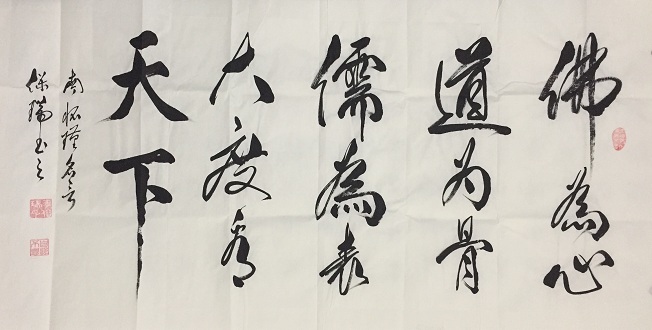 佛為心
道为骨
儒為表
大度看
天下
南怀瑾名言
保瑞书